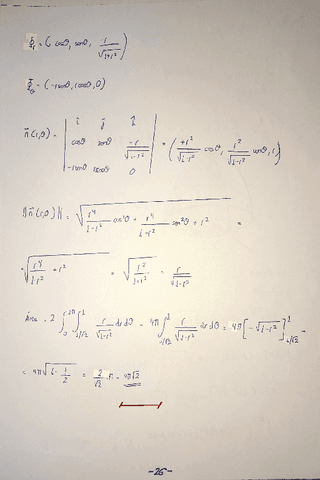 Φ_r = (cosθ, senθ, r/√(1-r²))
Φ_θ = (-rsenθ, rcosθ, 0)
n̄(r,θ) = | i j k ; cosθ senθ -r/√(1-r²) ; -rsenθ rcosθ 0 | = (+r²/√(1-r²) cosθ, r²/√(1-r²) senθ, r)
||n̄(r,θ)|| = √(r⁴/(1-r²) cos²θ + r⁴/(1-r²) sen²θ + r²) =
= √(r⁴/(1-r²) + r²) = √(r²/(1-r²)) = r/√(1-r²)
Area = 2 ∫₀^2π ∫_{1/√2}^1 r/√(1-r²) dr dθ = 4π ∫_{1/√2}^1 r/√(1-r²) dr dθ = 4π [-√(1-r²)]_{1/√2}^1 =
= 4π√(1-1/2) = 2/√2 π = 4π√2
-26-